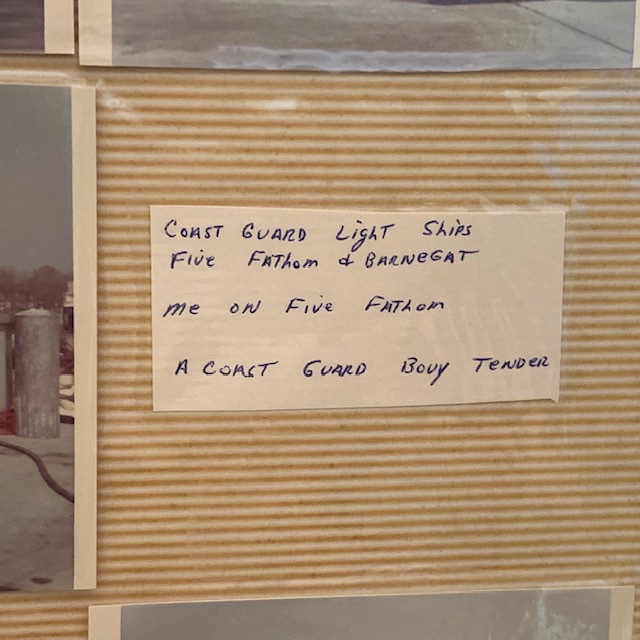 COAST GUARD LIGHT SHIPS
FIVE FATHOM & BARNEGAT
ME ON FIVE FATHOM
A COAST GUARD BOUY TENDER